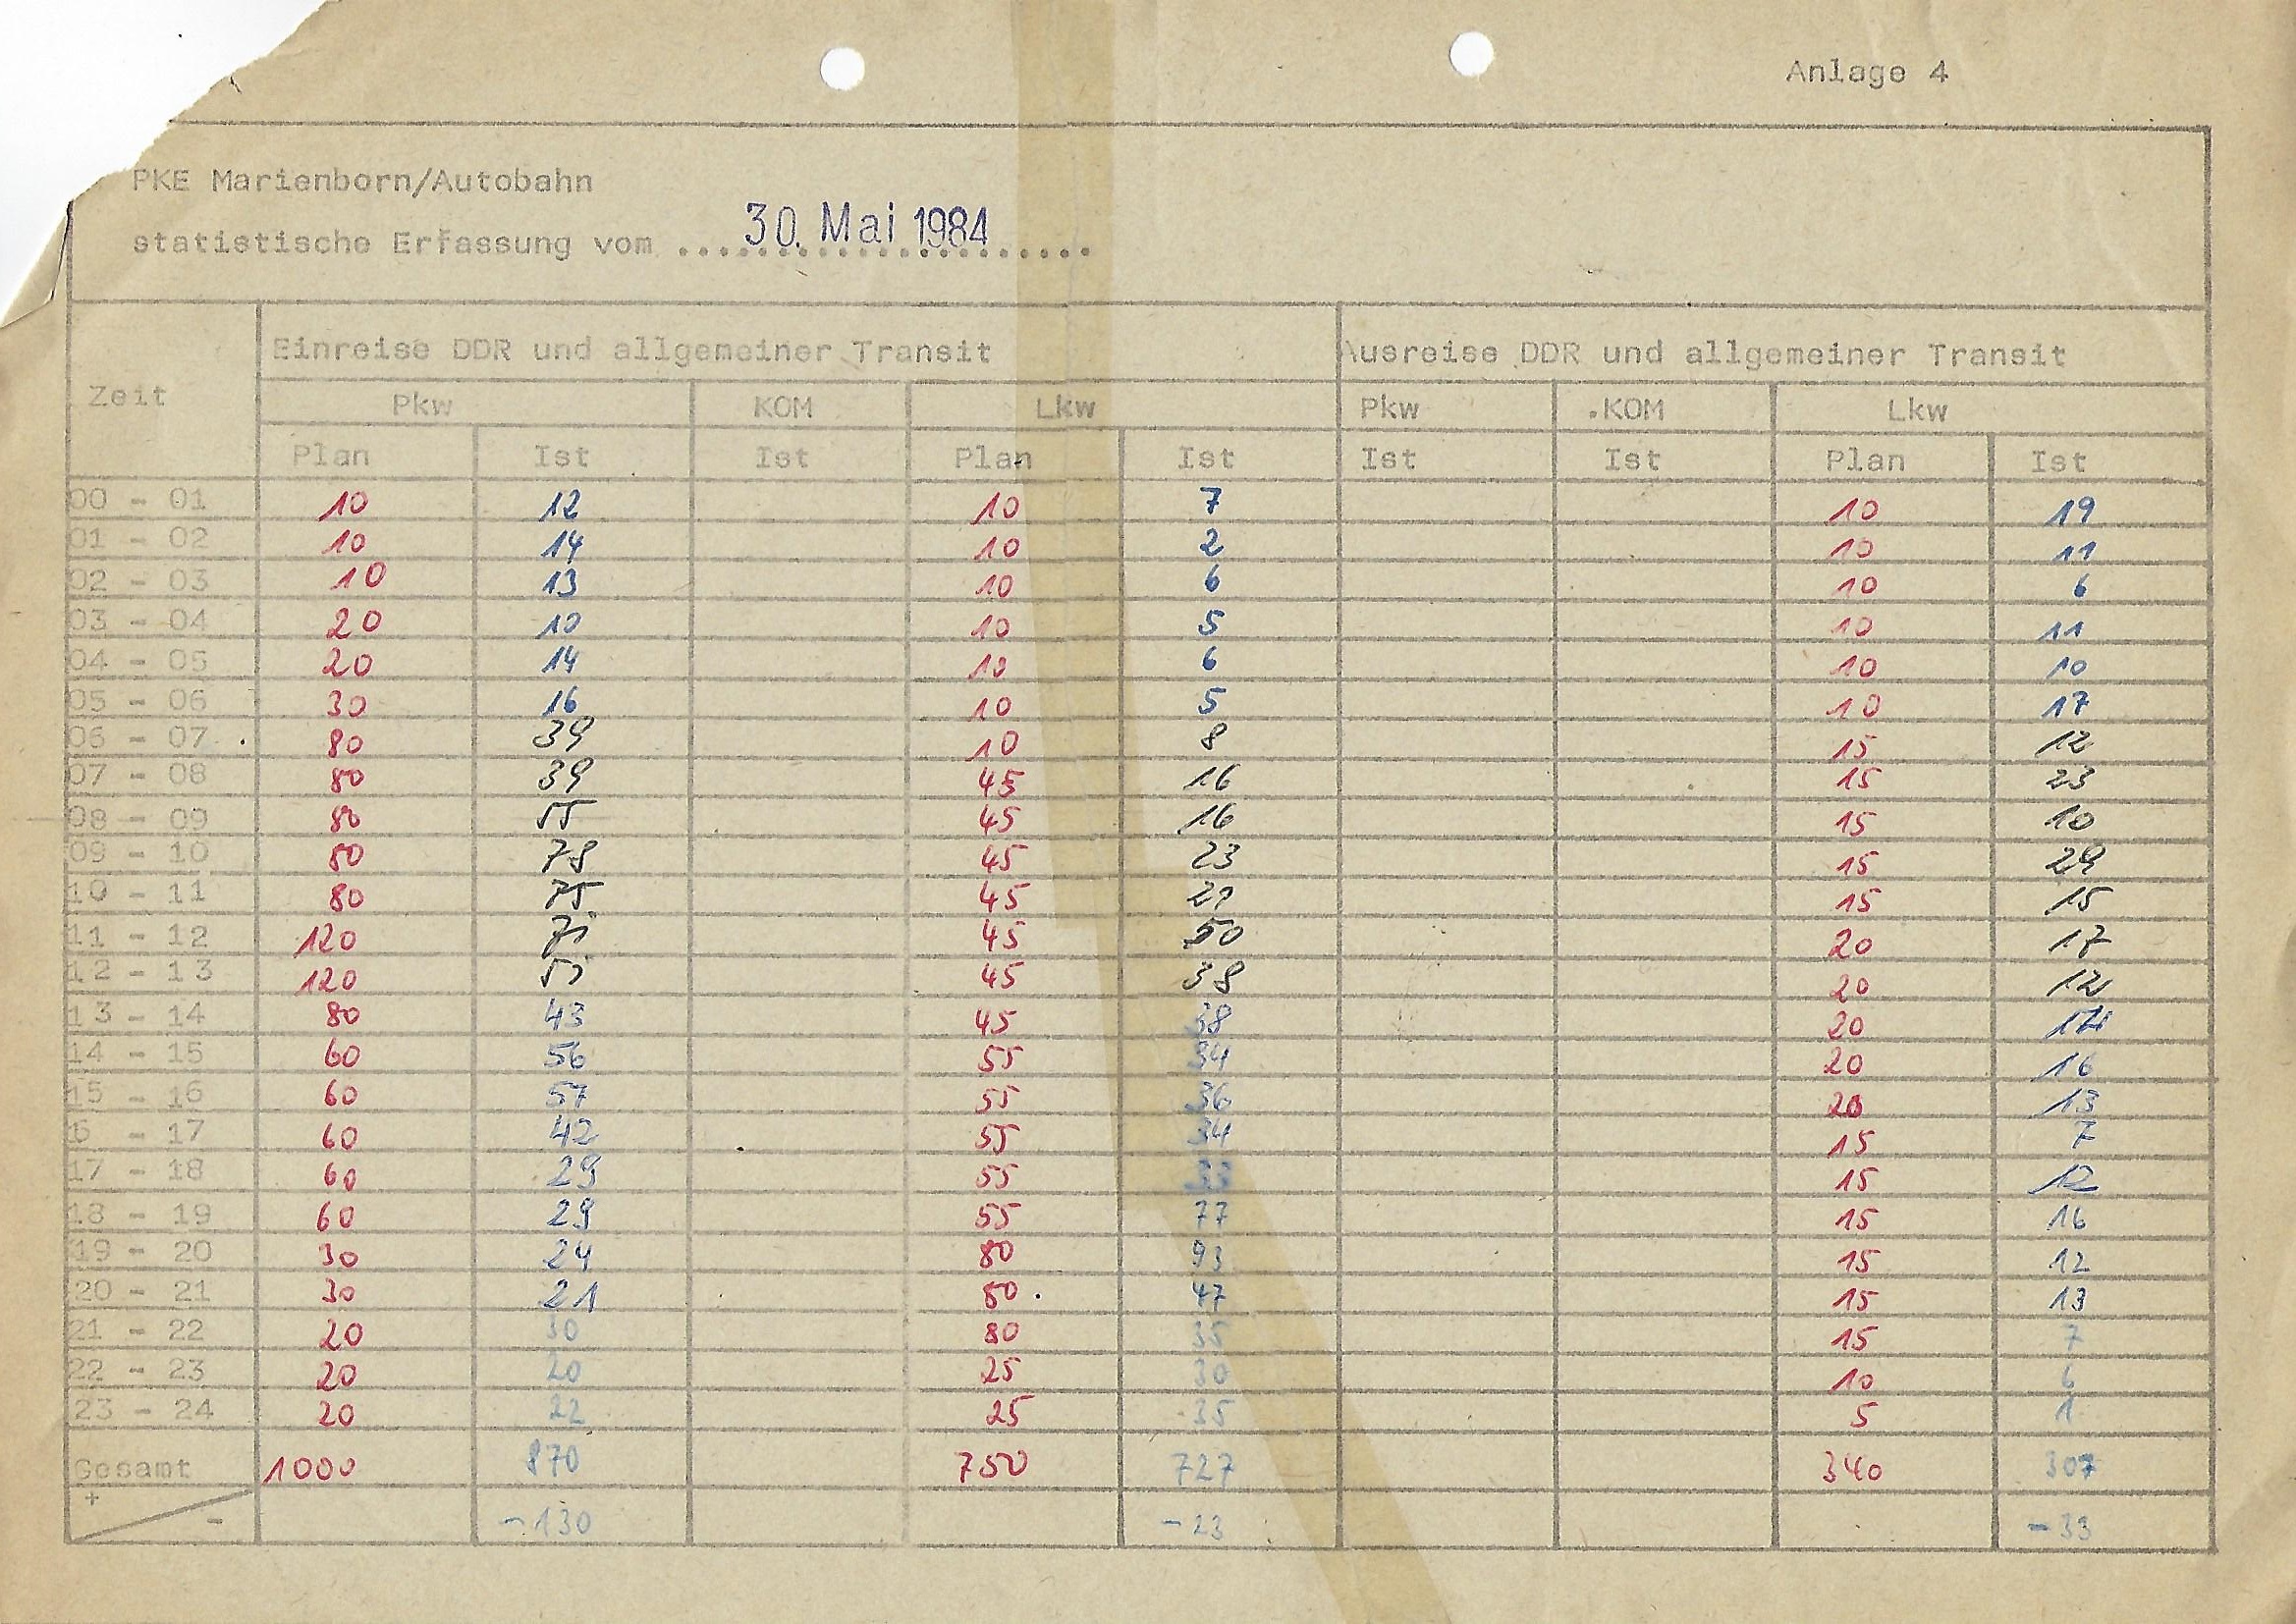 Anlage 4
PKE Marienborn/Autobahn
statistische Erfassung vom 30. Mai 1984
Einreise DDR und allgemeiner Transit Ausreise DDR und allgemeiner Transit
Zeit
Pkw KOM Lkw Pkw KOM Lkw
Plan Ist Ist Plan Ist Ist Ist Plan Ist
00 - 01 10 12 10 7 10 19
01 - 02 10 14 10 2 10 11
02 - 03 10 13 10 6 10 6
03 - 04 20 10 10 5 10 11
04 - 05 20 14 10 6 10 10
05 - 06 30 16 10 5 10 17
06 - 07 80 39 10 8 15 12
07 - 08 80 39 45 16 15 23
08 - 09 80 55 45 16 15 10
09 - 10 80 78 45 23 15 29
10 - 11 80 75 45 15 15
11 - 12 120 71 45 50 20 17
12 - 13 120 51 45 38 20 12
13 - 14 80 43 45 38 20
14 - 15 60 56 55 34 20 16
15 - 16 60 57 55 36 20 13
6 - 17 60 42 55 34 15 7
17 - 18 60 29 55 33 15 12
18 - 19 60 29 55 77 15 16
19 - 20 30 24 80 93 15 12
20 - 21 30 21 80 47 15 13
21 - 22 20 30 80 35 15 7
22 - 23 20 20 25 30 10 6
23 - 24 20 22 25 35 5 1
Gesamt 1000 870 750 727 340 307
+ - -130 -23 -33